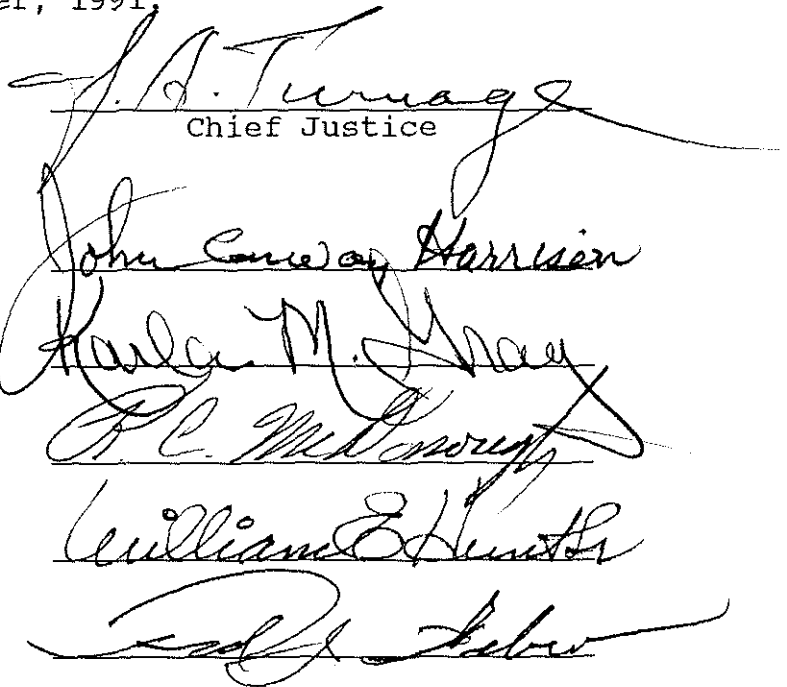 er, 1991.
J. A. Turnage
Chief Justice
John Conway Harrison
Karla M. Gray
R. C. McDonough
William E Hunt Sr
Fred J Weber